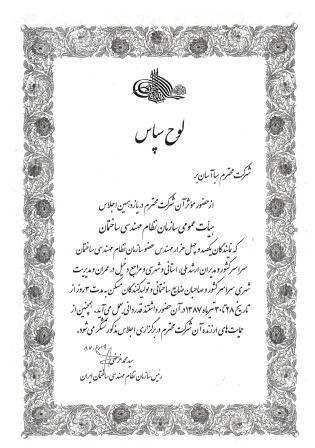 لوح سپاس
شرکت محترم سپاآسان بر
از حضور مؤثر آن شرکت محترم در یازدهمین اجلاس
هیأت عمومی سازمان نظام مهندسی ساختمان
که نمایندگان یکصد و چهل هزار مهندس عضو سازمان نظام مهندسی ساختمان
سراسر کشور و مدیران ارشد ملی، استانی و شهری و مراجع دخیل در عمران و مدیریت
شهری سراسر کشور و صاحبان صنایع ساختمانی و تولیدکنندگان مسکن به مدت ۳ روز از
تاریخ ۲۸ تا ۳۰ تیرماه ۱۳۸۷ در آن حضور داشتند قدردانی بعمل می‌آید. همچنین از
حمایت‌های ارزنده آن شرکت محترم در برگزاری اجلاس مذکور تشکر می‌شود.
سید محمد غرضی
رئیس سازمان نظام مهندسی ساختمان ایران